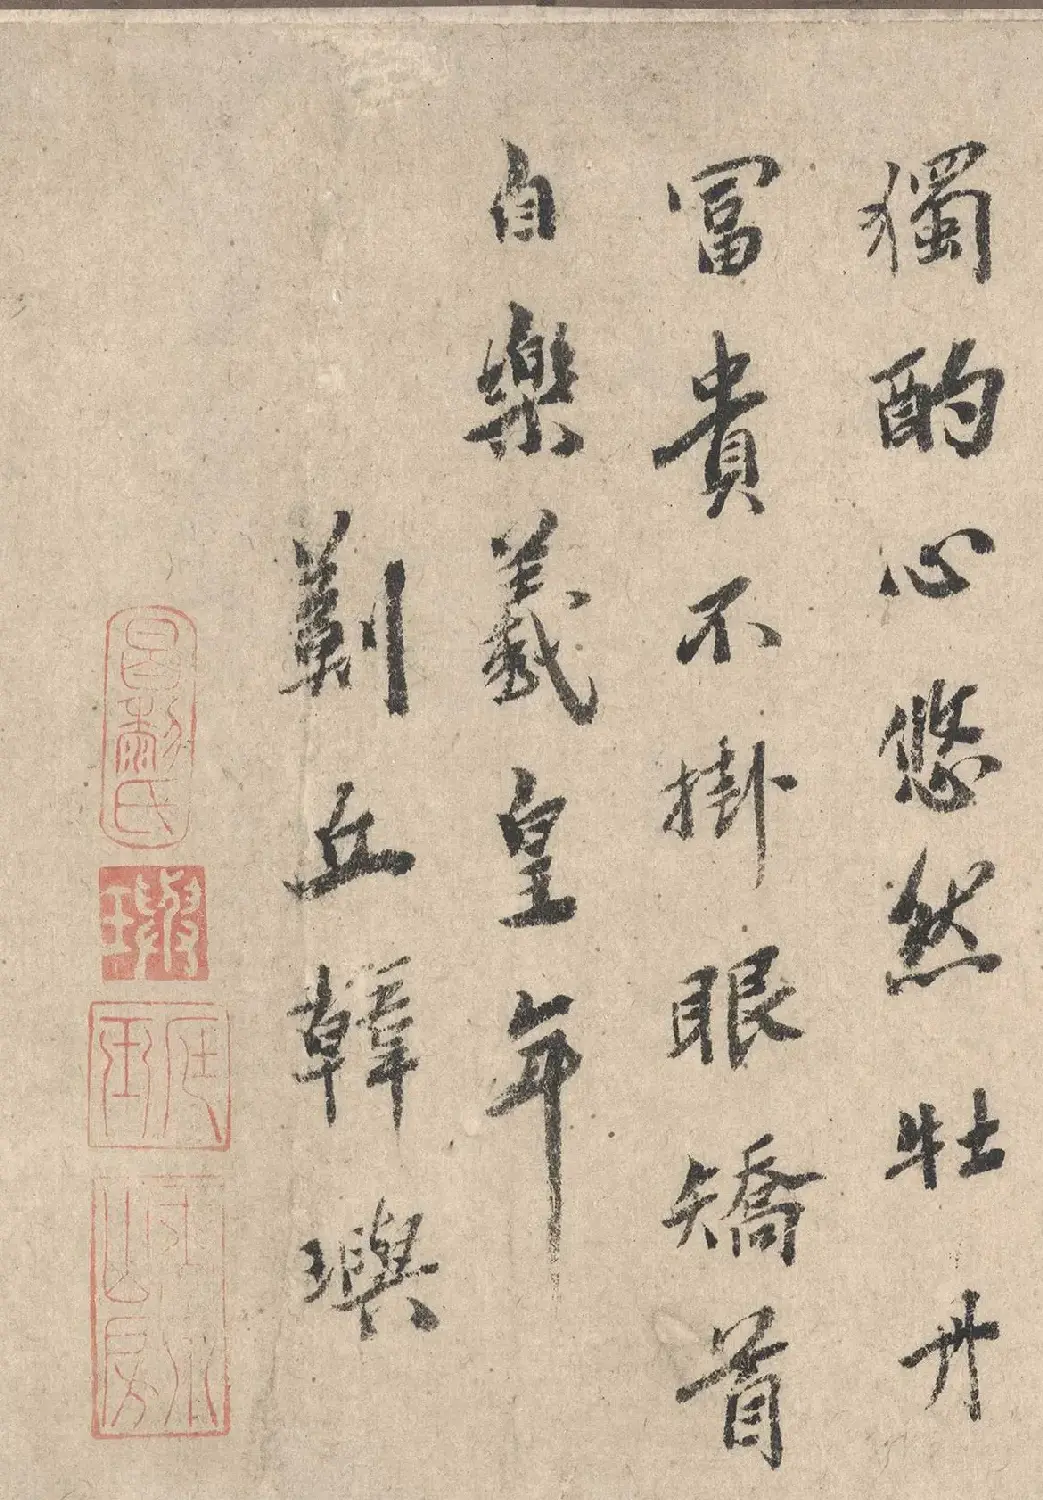 獨酌心悠然牡丹
富貴不掛眼矯首
自樂羲皇年
薊丘韓璵
昌黎氏